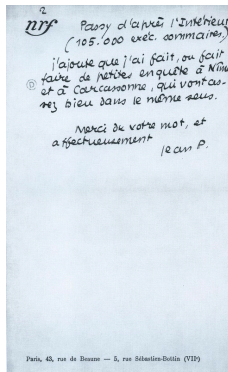 2
nrf
Passy d'après l'Intérieur
(105.000 exéc. sommaires)
j'ajoute que j'ai fait, ou fait
faire de petites enquête à Nîm
et à Carcassonne, qui vont as-
sez bien dans le même sens.
Merci de votre mot, et
affectueusement
Jean P.
Paris, 43, rue de Beaune — 5, rue Sébastien-Bottin (VIIe)